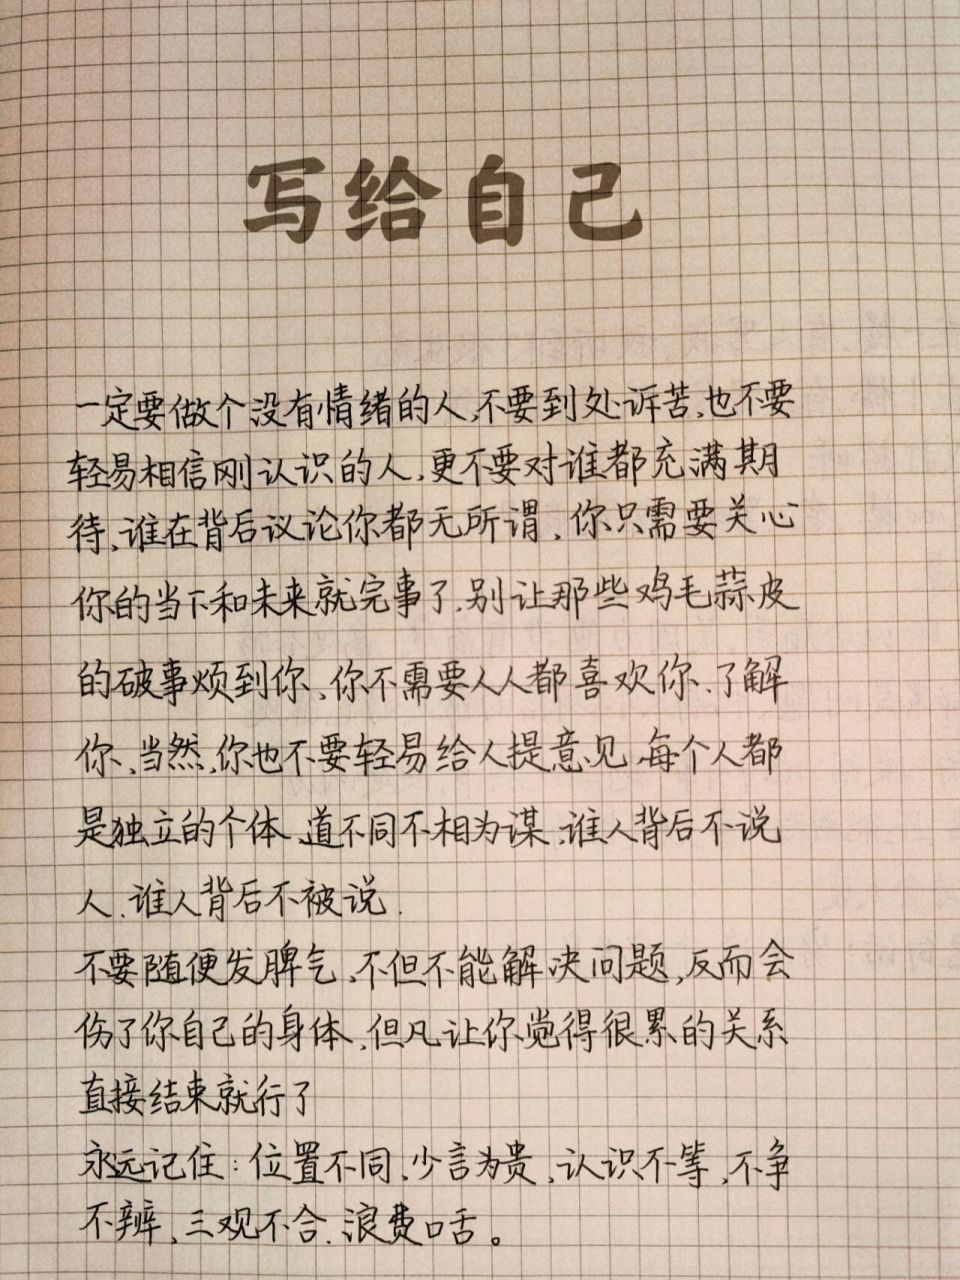 写给自己
一定要做个没有情绪的人,不要到处诉苦,也不要
轻易相信刚认识的人,更不要对谁都充满期
待、谁在背后议论你都无所谓、你只需要关心
你的当下和未来就完事了.别让那些鸡毛蒜皮
的破事烦到你、你不需要人人都喜欢你.了解
你、当然,你也不要轻易给人提意见.每个人都
是独立的个体、道不同不相为谋.谁人背后不说
人.谁人背后不被说.
不要随便发脾气、不但不能解决问题,反而会
伤了你自己的身体、但凡让你觉得很累的关系
直接结束就行了
永远记住:位置不同、少言为贵,认识不等,不争
不辨、三观不合.浪费口舌。